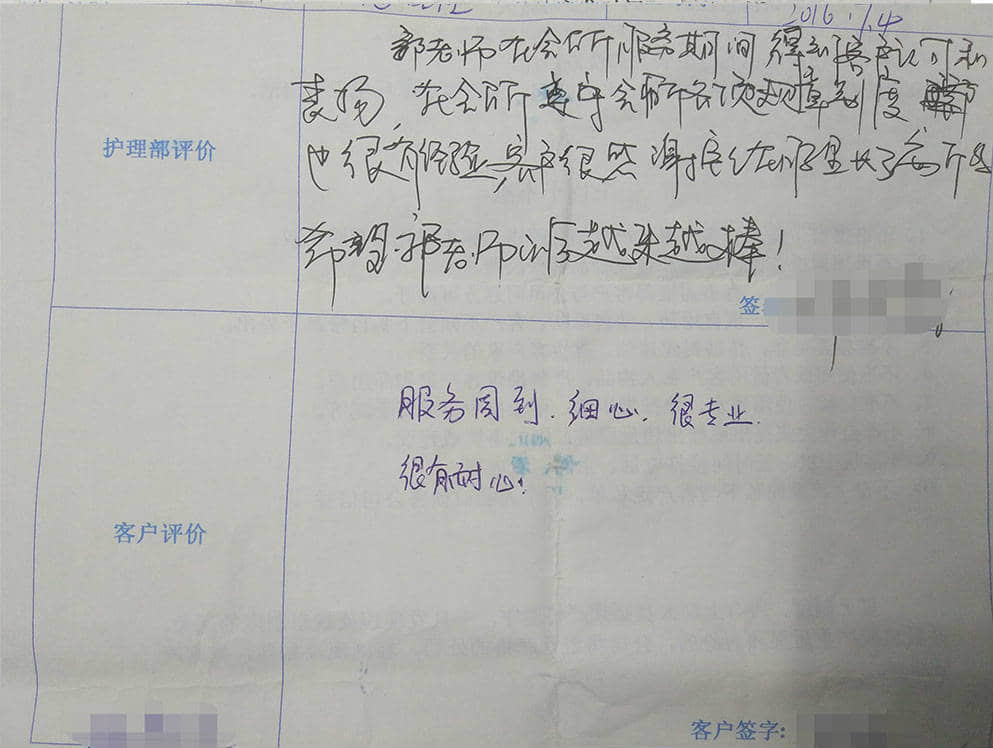 2016.7.4
护理部评价
郭老师在会所服务期间得到客户认可和
表扬,在会所遵守会所各项规章制度
也很有经验,客户很感谢
希望郭老师以后越来越棒!
签
客户评价
服务周到.细心.很专业.
很有耐心!
客户签字: